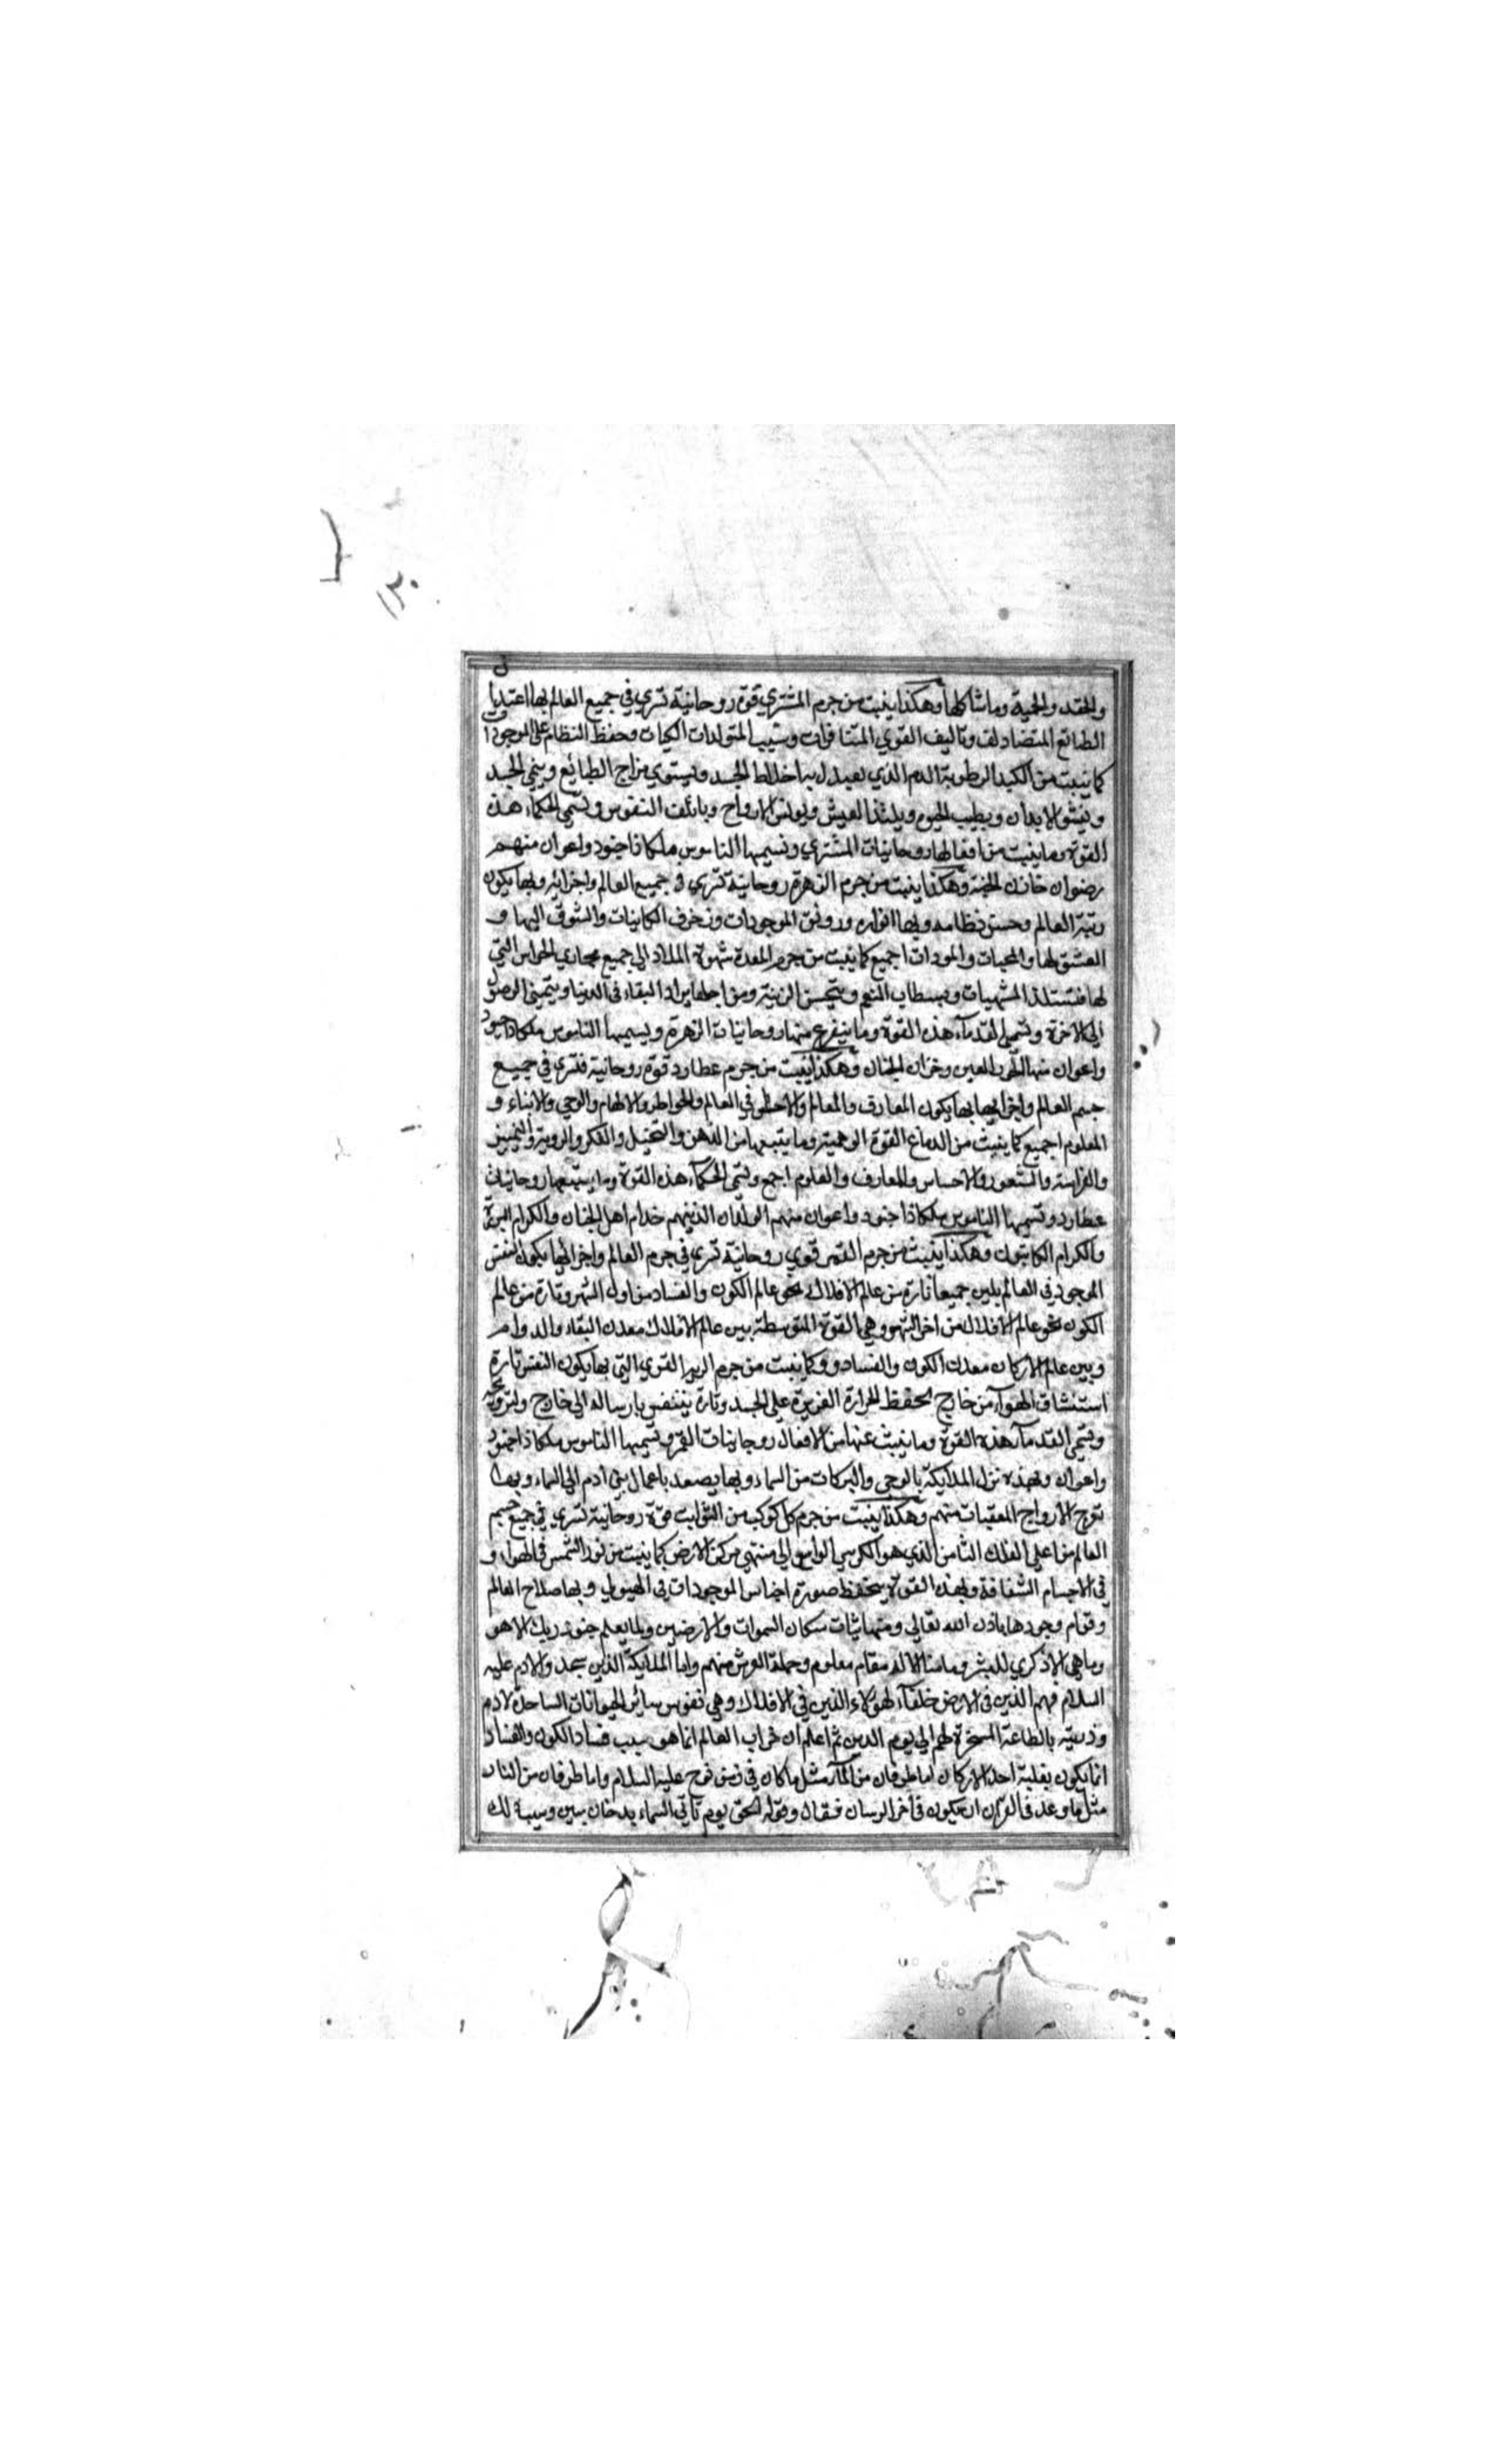 ١٣٠
والحقد والحمية وما شاكلها وهكذا ينبت من جرم المشتري قوة روحانية تسري في جميع العالم بها اعتدال
الطبائع المتضادات وتاليف القوي المتنافرات وسبب المتولدات الكيات وحفظ النظام على الموجودات
كما ينبت من الكبد الرطوبة الدم الذي يعيدل به اخلاط الجسد ويستوي مزاج الطبائع وينمي الجسد
وينشو الابدان ويطيب الحيوم ويلتذ العيش ويونس الارواح وباتلف النفوس وتسمي الحكماء هذه
القوة وما ينبت من افعالها روحانيات المشتري وتسميها الناموس ملكا ذا جنود واعوان منهم
رضوان خازن الجنة وهكذا ينبت من جرم الزهرة روحانية تسري في جميع العالم واجزائه وبها يكون
زينة العالم وحسن نظامه وبها انواره ورونق الموجودات وزخرف الكاينات والشوق اليها و
العشق لها والمحبات والمودات اجمع كما ينبت من جرم المعدة شهوة الملاذ الي جميع مجاري الحواس التي
لها فتستلذ المشتهيات ويستطاب النعم ويتحسن الزينة ومن اجلها يراد البقاء في الدنيا ويتمني الوصول
الي الاخرة وتسمي القدماء هذه القوة وما ينفرع منها روحانيات الزهرة ويسميها الناموس ملكا ذا جنود
واعوان منها الحور العين وخزان الجنان وهكذا ينبت من جرم عطارد قوة روحانية فتري في جميع
جسم العالم واجزائها بها يكون المعارف والمعالم والاحساس في العالم والخواطر والالهام والوحي والانباء و
المعلوم اجمع كما ينبث من الدماغ القوة الوهمية وما يتبعها من الذهن والتخيل والفكر والروية والتميز
والفراسة والشعور والاحساس والمعارف والعلوم اجمع وتسمي الحكماء هذه القوة وما يتبعها روحانيات
عطارد وتسميها الناموس ملكا ذا جنود واعوان منهم الولدان الذينهم خدام اهل الجنان والكرام البررة
والكرام الكاتبون وهكذا ينبث من جرم القمر قوي روحانية تسري في جرم العالم واجزائها يكون النفس
الموجود في العالمين جميعا تارة من عالم الافلاك نحو عالم الكون والفساد من اول الشهر وتارة من عالم
الكون نحو عالم الافلاك من اخر الشهر وهي القوة المتوسطة بين عالم الافلاك معدن البقاء والدوام
وبين عالم الاركان معدن الكون والفساد وكما ينبت من جرم الرية القوي التي بها يكون النفس تارة
استنشاق الهواء من خارج لحفظ الحرارة الغزيرة علي الجسد وتارة يتنفس بارساله الي خارج ولترويحه
وتسمي القدماء هذه القوة وما ينبث عنها من الافعال روحانيات القمر وتسميها الناموس ملكا ذا جنود
واعوان وبهذه تنزل الملايكة بالوحي والبركات من السماء وبها يصعد باعمال بني ادم الي السماء وبها
تعرج الارواح المعقبات منهم وهكذا ينبت من جرم كل كوكب من الثوابت قوة روحانية تسري في جميع جسم
العالم من اعلي الفلك الثامن الذي هو الكرسي الواسع الي منتهي مركز الارض كما ينبت من نور الشمس في الهواء و
في الاجسام الشفافة وبهذه القوة يتحفظ صورة اجناس الموجودات في الهيولي وبها صلاح العالم
وقوام وجودها باذن الله تعالي ومنها ثبات سكان السموات والارضين وما يعلم جنود ربك الا هو
وما هي الا ذكري للبشر وما منا الا له مقام معلوم وحملة العرش منهم واما الملايكة الذين سجدوا لادم عليه
السلام فهم الذين في الارض خلفآء لهؤلاء الذين في الافلاك وهي نفوس سائر الحيوانات الساجدة لادم
وذريته بالطاعة المسخرة لهم الي يوم الدين ثم اعلم ان خراب العالم انما هو سبب فساد الكون والفساد
انما يكون بغلبة احد الاركان اما طوفان من المآء مثل ما كان في زمن نوح عليه السلام واما طوفان من النار
مثل ما وعد في القرآن ان يكون في آخر الزمان فقال وقوله الحق يوم تاتي السماء بدخان مبين وسبب ذلك